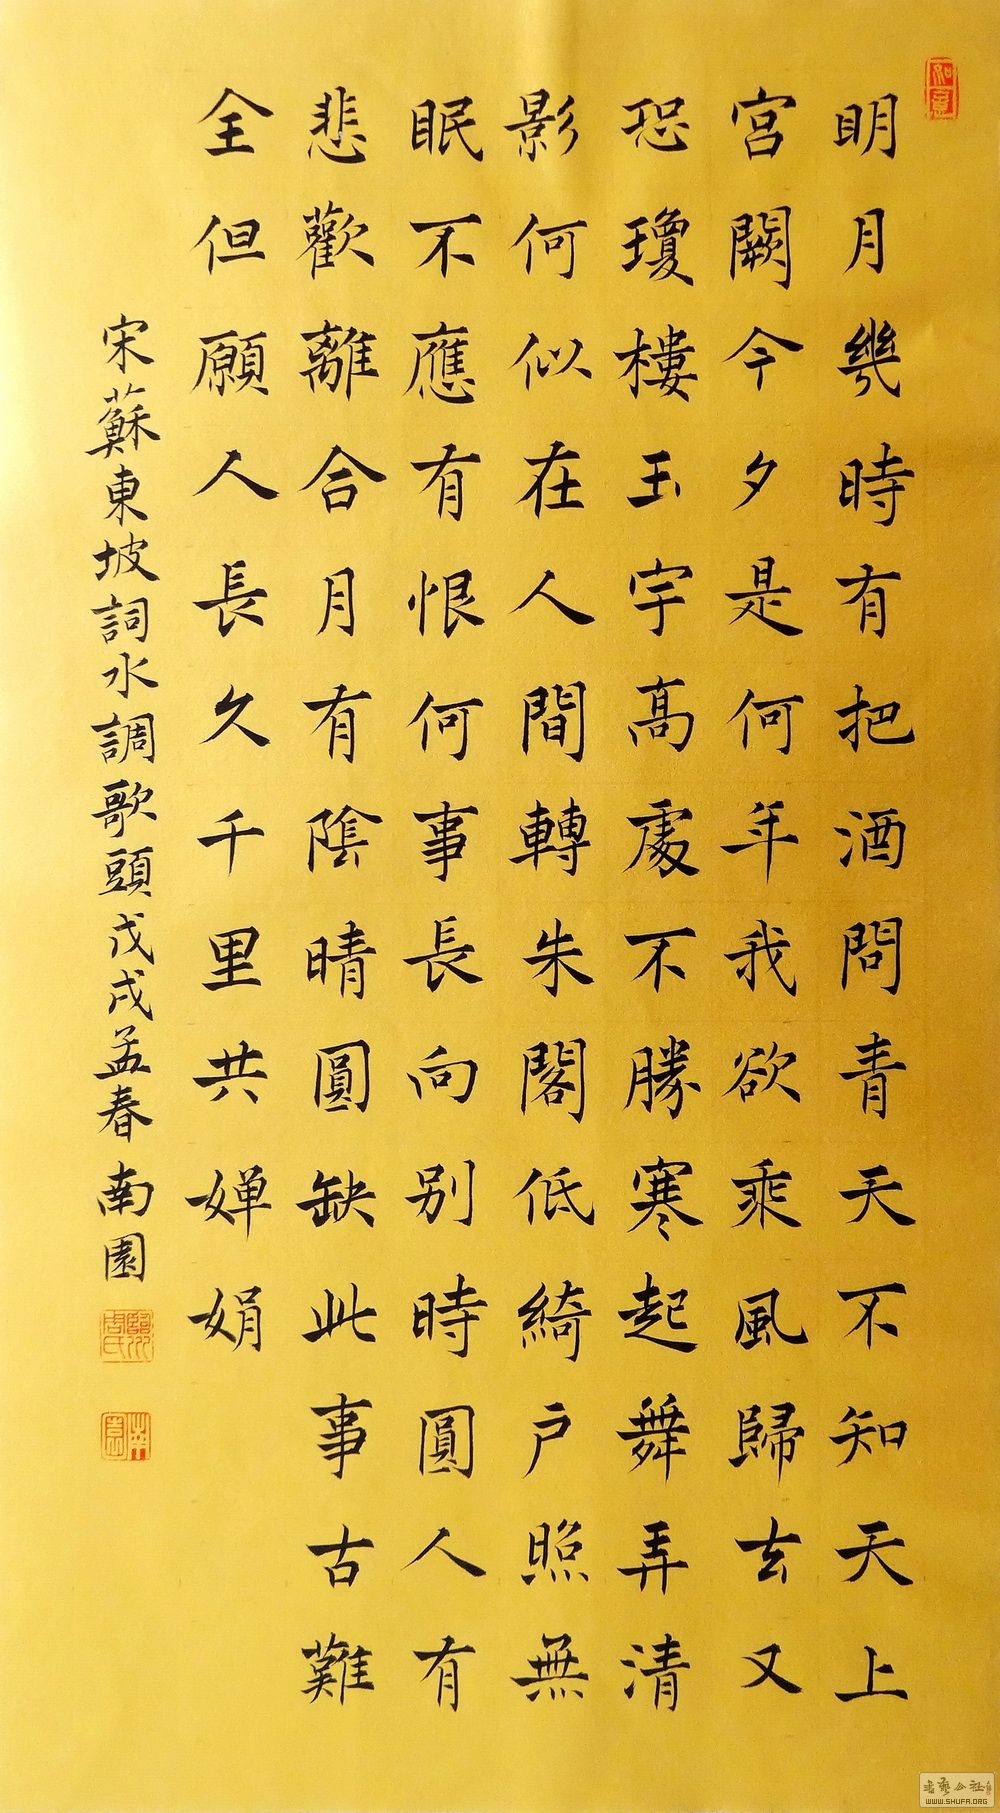 如意
明月幾時有把酒問青天不知天上
宫闕今夕是何年我欲乘風歸去又
恐瓊樓玉宇高處不勝寒起舞弄清
影何似在人間轉朱閣低綺户照無
眠不應有恨何事長向别時圓人有
悲歡離合月有陰晴圓缺此事古難
全但願人長久千里共嬋娟
宋蘇東坡詞水調歌頭戊戌孟春南園
書藝公社
WWW.SHUFA.ORG